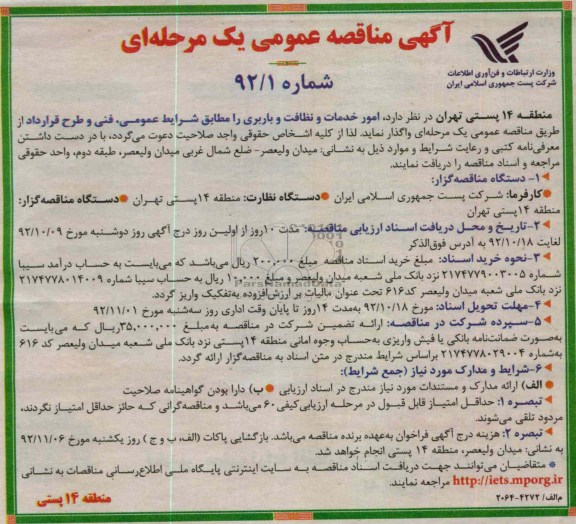 آگهی مناقصه عمومی یک مرحله‌ای
شماره ۹۲/۱
وزارت ارتباطات و فن‌آوری اطلاعات
شرکت پست جمهوری اسلامی ایران
منطقه ۱۴ پستی تهران در نظر دارد، امور خدمات و نظافت و باربری را مطابق شرایط عمومی، فنی و طرح قرارداد از
طریق مناقصه عمومی یک مرحله‌ای واگذار نماید. لذا از کلیه اشخاص حقوقی واجد صلاحیت دعوت می‌گردد، با در دست داشتن
معرفی‌نامه کتبی و رعایت شرایط و موارد ذیل به نشانی: میدان ولیعصر- ضلع شمال غربی میدان ولیعصر، طبقه دوم، واحد حقوقی
مراجعه و اسناد مناقصه را دریافت نمایند.
۱- دستگاه مناقصه‌گزار:
کارفرما: شرکت پست جمهوری اسلامی ایران دستگاه نظارت: منطقه ۱۴پستی تهران دستگاه مناقصه‌گزار:
منطقه ۱۴پستی تهران
۲-تاریخ و محل دریافت اسناد ارزیابی مناقصه: مدت ۱۰روز از اولین روز درج آگهی روز دوشنبه مورخ ۹۲/۱۰/۰۹
لغایت ۹۲/۱۰/۱۸ به آدرس فوق‌الذکر
۳-نحوه خرید اسناد: مبلغ خرید اسناد مناقصه مبلغ ۲۰۰,۰۰۰ ریال می‌باشد که می‌بایست به حساب درآمد سیبا
شماره ۲۱۷۴۴۷۷۹۰۰۳۰۰۵ نزد بانک ملی شعبه میدان ولیعصر و مبلغ ریال به حساب سیبا شماره ۲۱۷۴۴۷۷۸۰۱۴۰۰۹
نزد بانک ملی شعبه میدان ولیعصر کد۶۱۶ تحت عنوان مالیات بر ارزش‌افزوده به‌تفکیک واریز گردد.
۴-مهلت تحویل اسناد: از مورخ ۹۲/۱۰/۱۸ به‌مدت ۱۴روز تا پایان وقت اداری روز سه‌شنبه مورخ ۹۲/۱۱/۰۱
۵-سپرده شرکت در مناقصه: ارائه تضمین شرکت در مناقصه به‌مبلغ ۳۵,۰۰۰,۰۰۰ریال که می‌بایست
به‌صورت ضمانت‌نامه بانکی یا فیش واریزی به‌حساب وجوه امانی منطقه ۱۴پستی نزد بانک ملی شعبه میدان ولیعصر کد ۶۱۶
به‌شماره ۲۱۷۴۴۷۷۸۰۲۹۰۰۴ براساس شرایط مندرج در متن اسناد به مناقصه‌گزار ارائه گردد.
۶-شرایط و مدارک مورد نیاز (جمع شرایط):
الف) ارائه مدارک و مستندات مورد نیاز مندرج در اسناد ارزیابی ب) دارا بودن گواهینامه صلاحیت
تبصره ۱: حداقل امتیاز قابل قبول در مرحله ارزیابی‌کیفی ۶۰ می‌باشد و مناقصه‌گرانی که حائز حداقل امتیاز نگردند،
مردود تلقی می‌شوند.
تبصره ۲: هزینه درج آگهی فراخوان به‌عهده برنده مناقصه می‌باشد. بازگشایی پاکات (الف، ب و ج ) روز یکشنبه مورخ ۹۲/۱۱/۰۶
به نشانی: میدان ولیعصر، منطقه ۱۴ پستی انجام خواهد شد.
* متقاضیان می‌توانند جهت دریافت اسناد مناقصه به سایت اینترنتی پایگاه ملی اطلاع‌رسانی مناقصات به نشانی
http://iets.mporg.ir مراجعه نمایند.
منطقه ۱۴ پستی
م‌الف/ ۴۲۷۲-۲۰۶۴